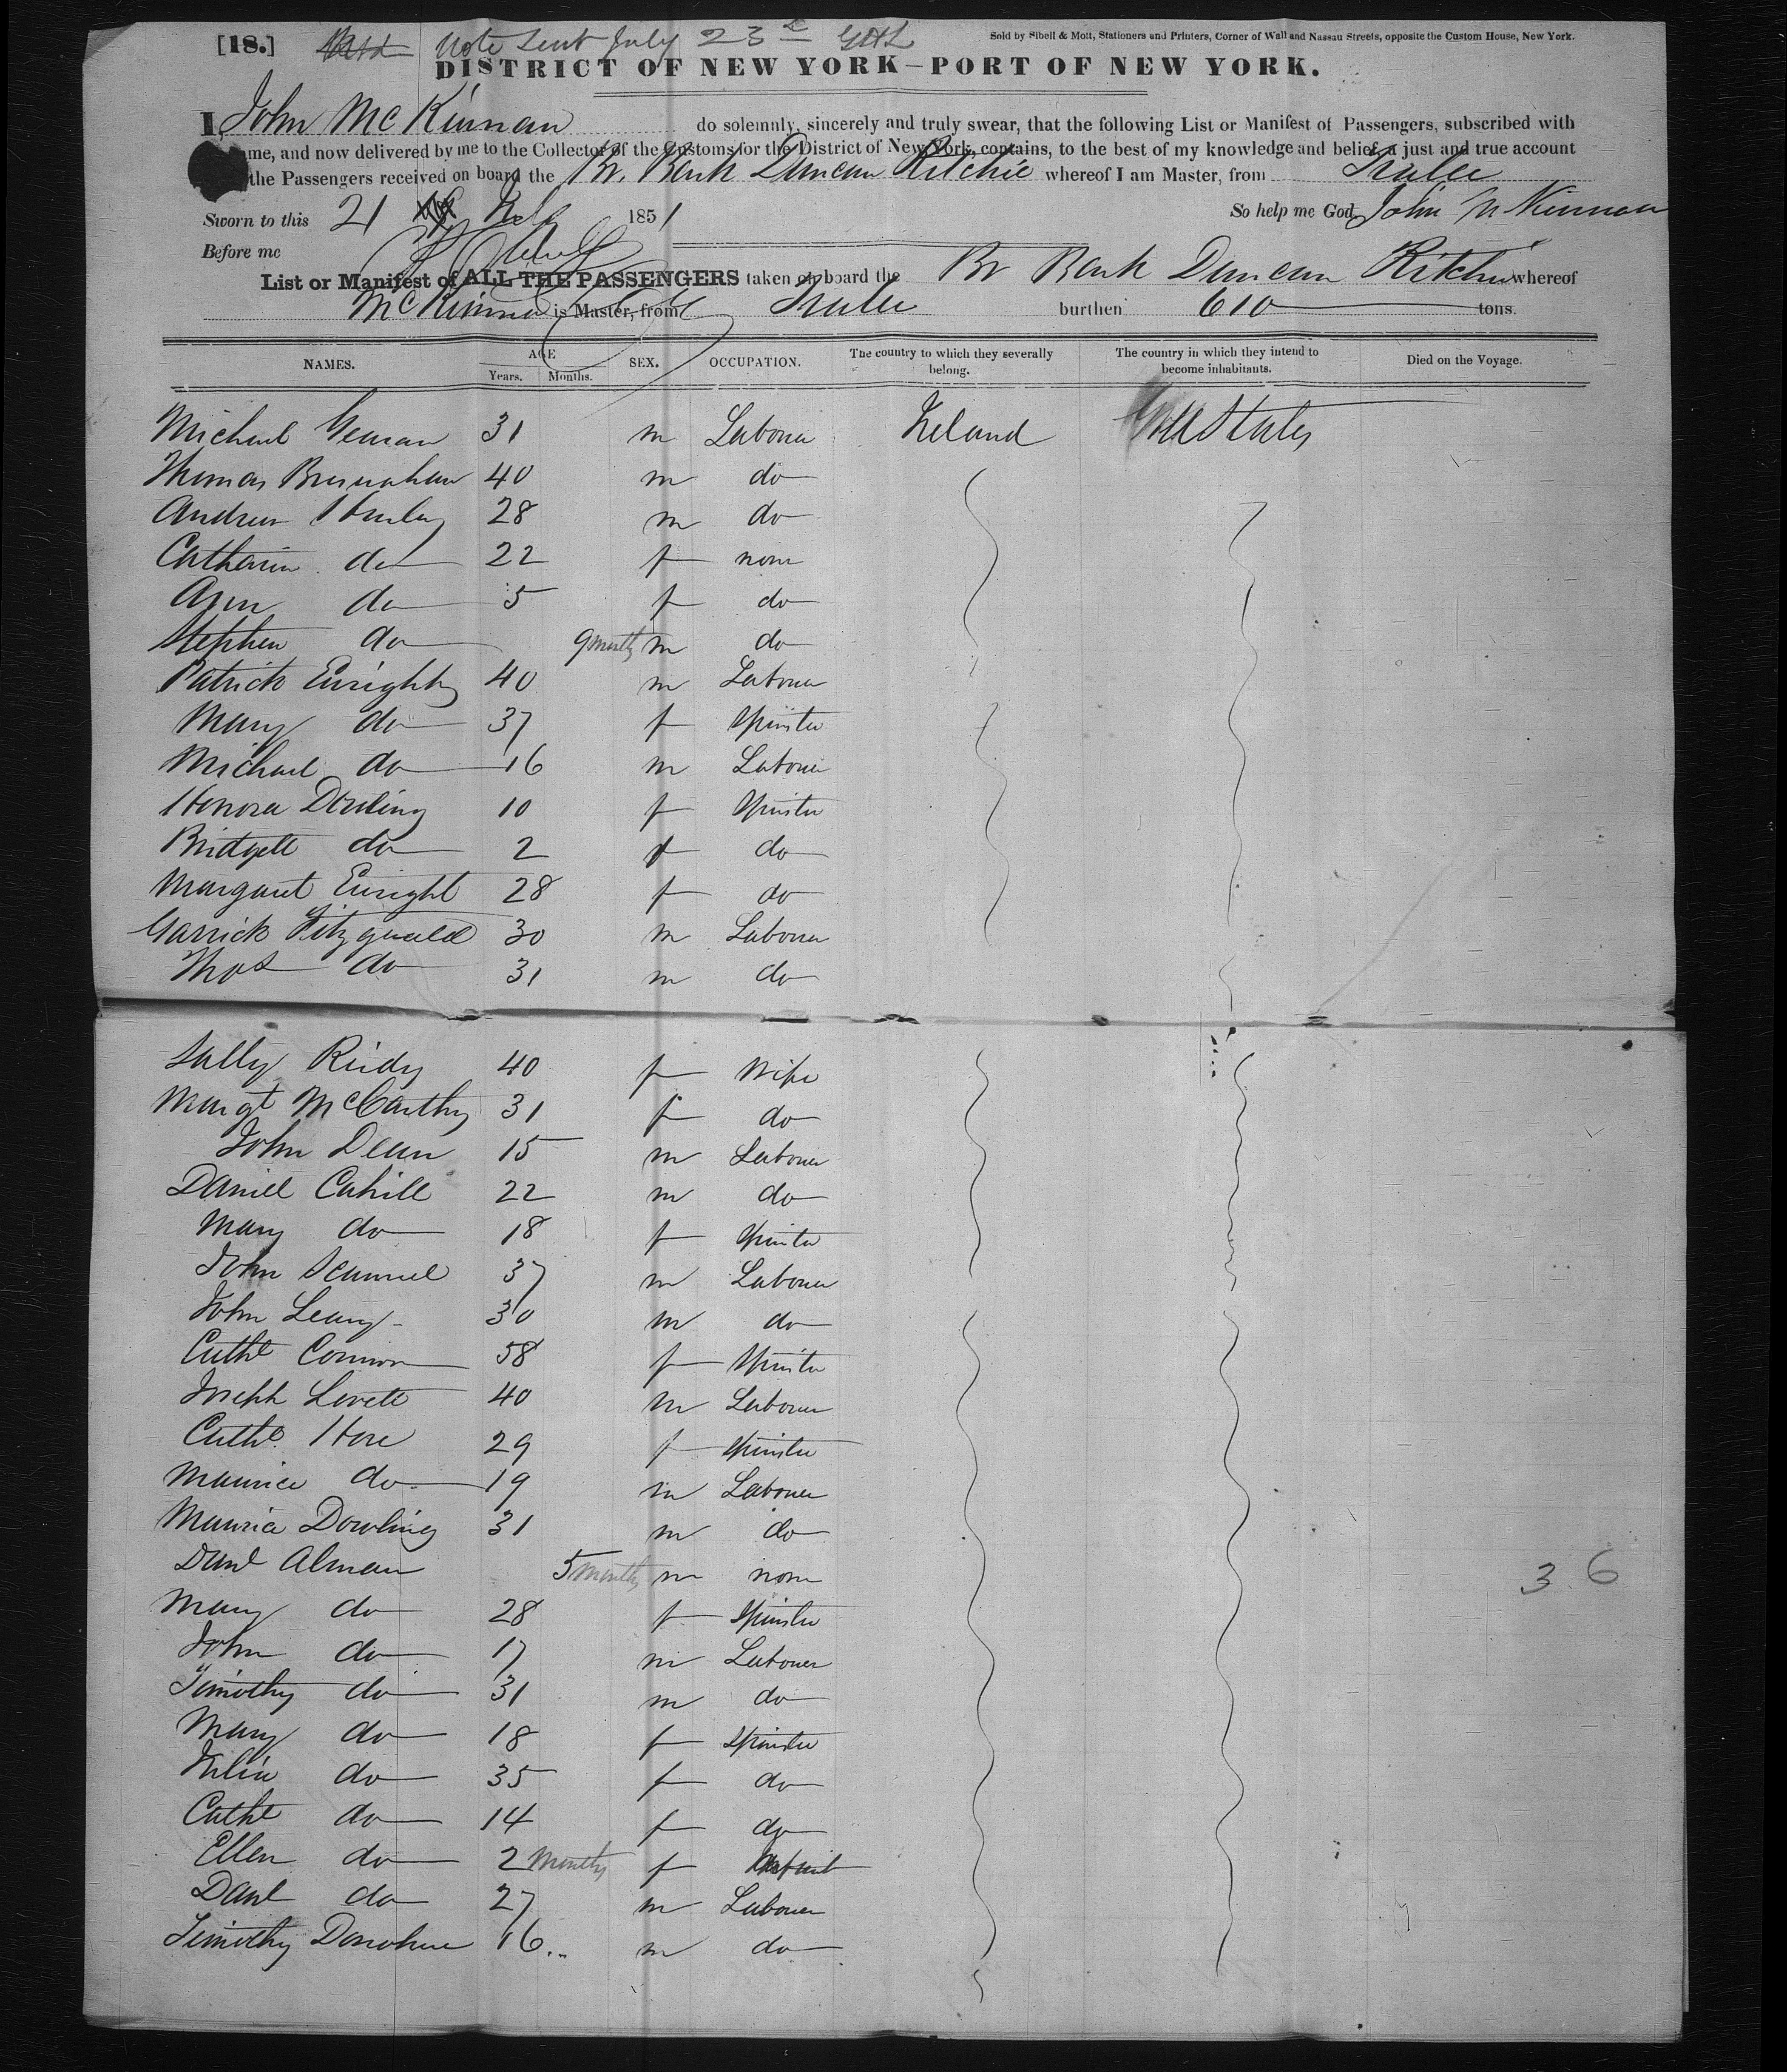 [18.] Note Sent July 23d Sold by Sibell & Mott, Stationers and Printers, Corner of Wall and Nassau Streets, opposite the Custom House, New York.
DISTRICT OF NEW YORK—PORT OF NEW YORK.
I, John McKinnan do solemnly, sincerely and truly swear, that the following List or Manifest of Passengers, subscribed with
me, and now delivered by me to the Collector of the Customs for the District of New York, contains, to the best of my knowledge and belief, a just and true account
the Passengers received on board the Br. Bark Duncan Ritchie whereof I am Master, from Tralee
Sworn to this 21 July 1851 So help me God, John McKinnan
Before me
List or Manifest of ALL THE PASSENGERS taken on board the Br Bark Duncan Ritchie whereof
McKinnan is Master, from Tralee burthen 610 tons.
NAMES. AGE SEX. OCCUPATION. The country to which they severally belong. The country in which they intend to become inhabitants. Died on the Voyage.
Years. Months.
Michael 31 m Labourer Ireland States
Thomas Bresnahan 40 m do
Andrew Hurley 28 m do
Catherine do 22 f none
Ann do 5 f do
Stephen do 9 months m do
Patrick Enright 40 m Labourer
Mary do 37 f Spinster
Michael do 16 m Labourer
Honora Dowling 10 f Spinster
Bridgett do 2 f do
Margaret Enright 28 f do
Garrick Fitzgerald 30 m Labourer
Thos do 31 m do
Sally Reidy 40 f Wife
Margt McCarthy 31 f do
John Dean 15 m Labourer
Daniel Cahill 22 m do
Mary do 18 f Spinster
John Scannel 37 m Labourer
John Leary 30 m do
Cathe Connor 58 f Spinster
Joseph Lovett 40 m Labourer
Cathe Hore 29 f Spinster
Maurice do 19 m Labourer
Maurice Dowling 31 m do
Danl Alman 5 months m none
Mary do 28 f Spinster 36
John do 17 m Labourer
Timothy do 31 m do
Mary do 18 f Spinster
Julia do 35 f do
Cathe do 14 f do
Ellen do 2 months f Infant
Danl do 27 m Labourer
Timothy Donohue 16 m do